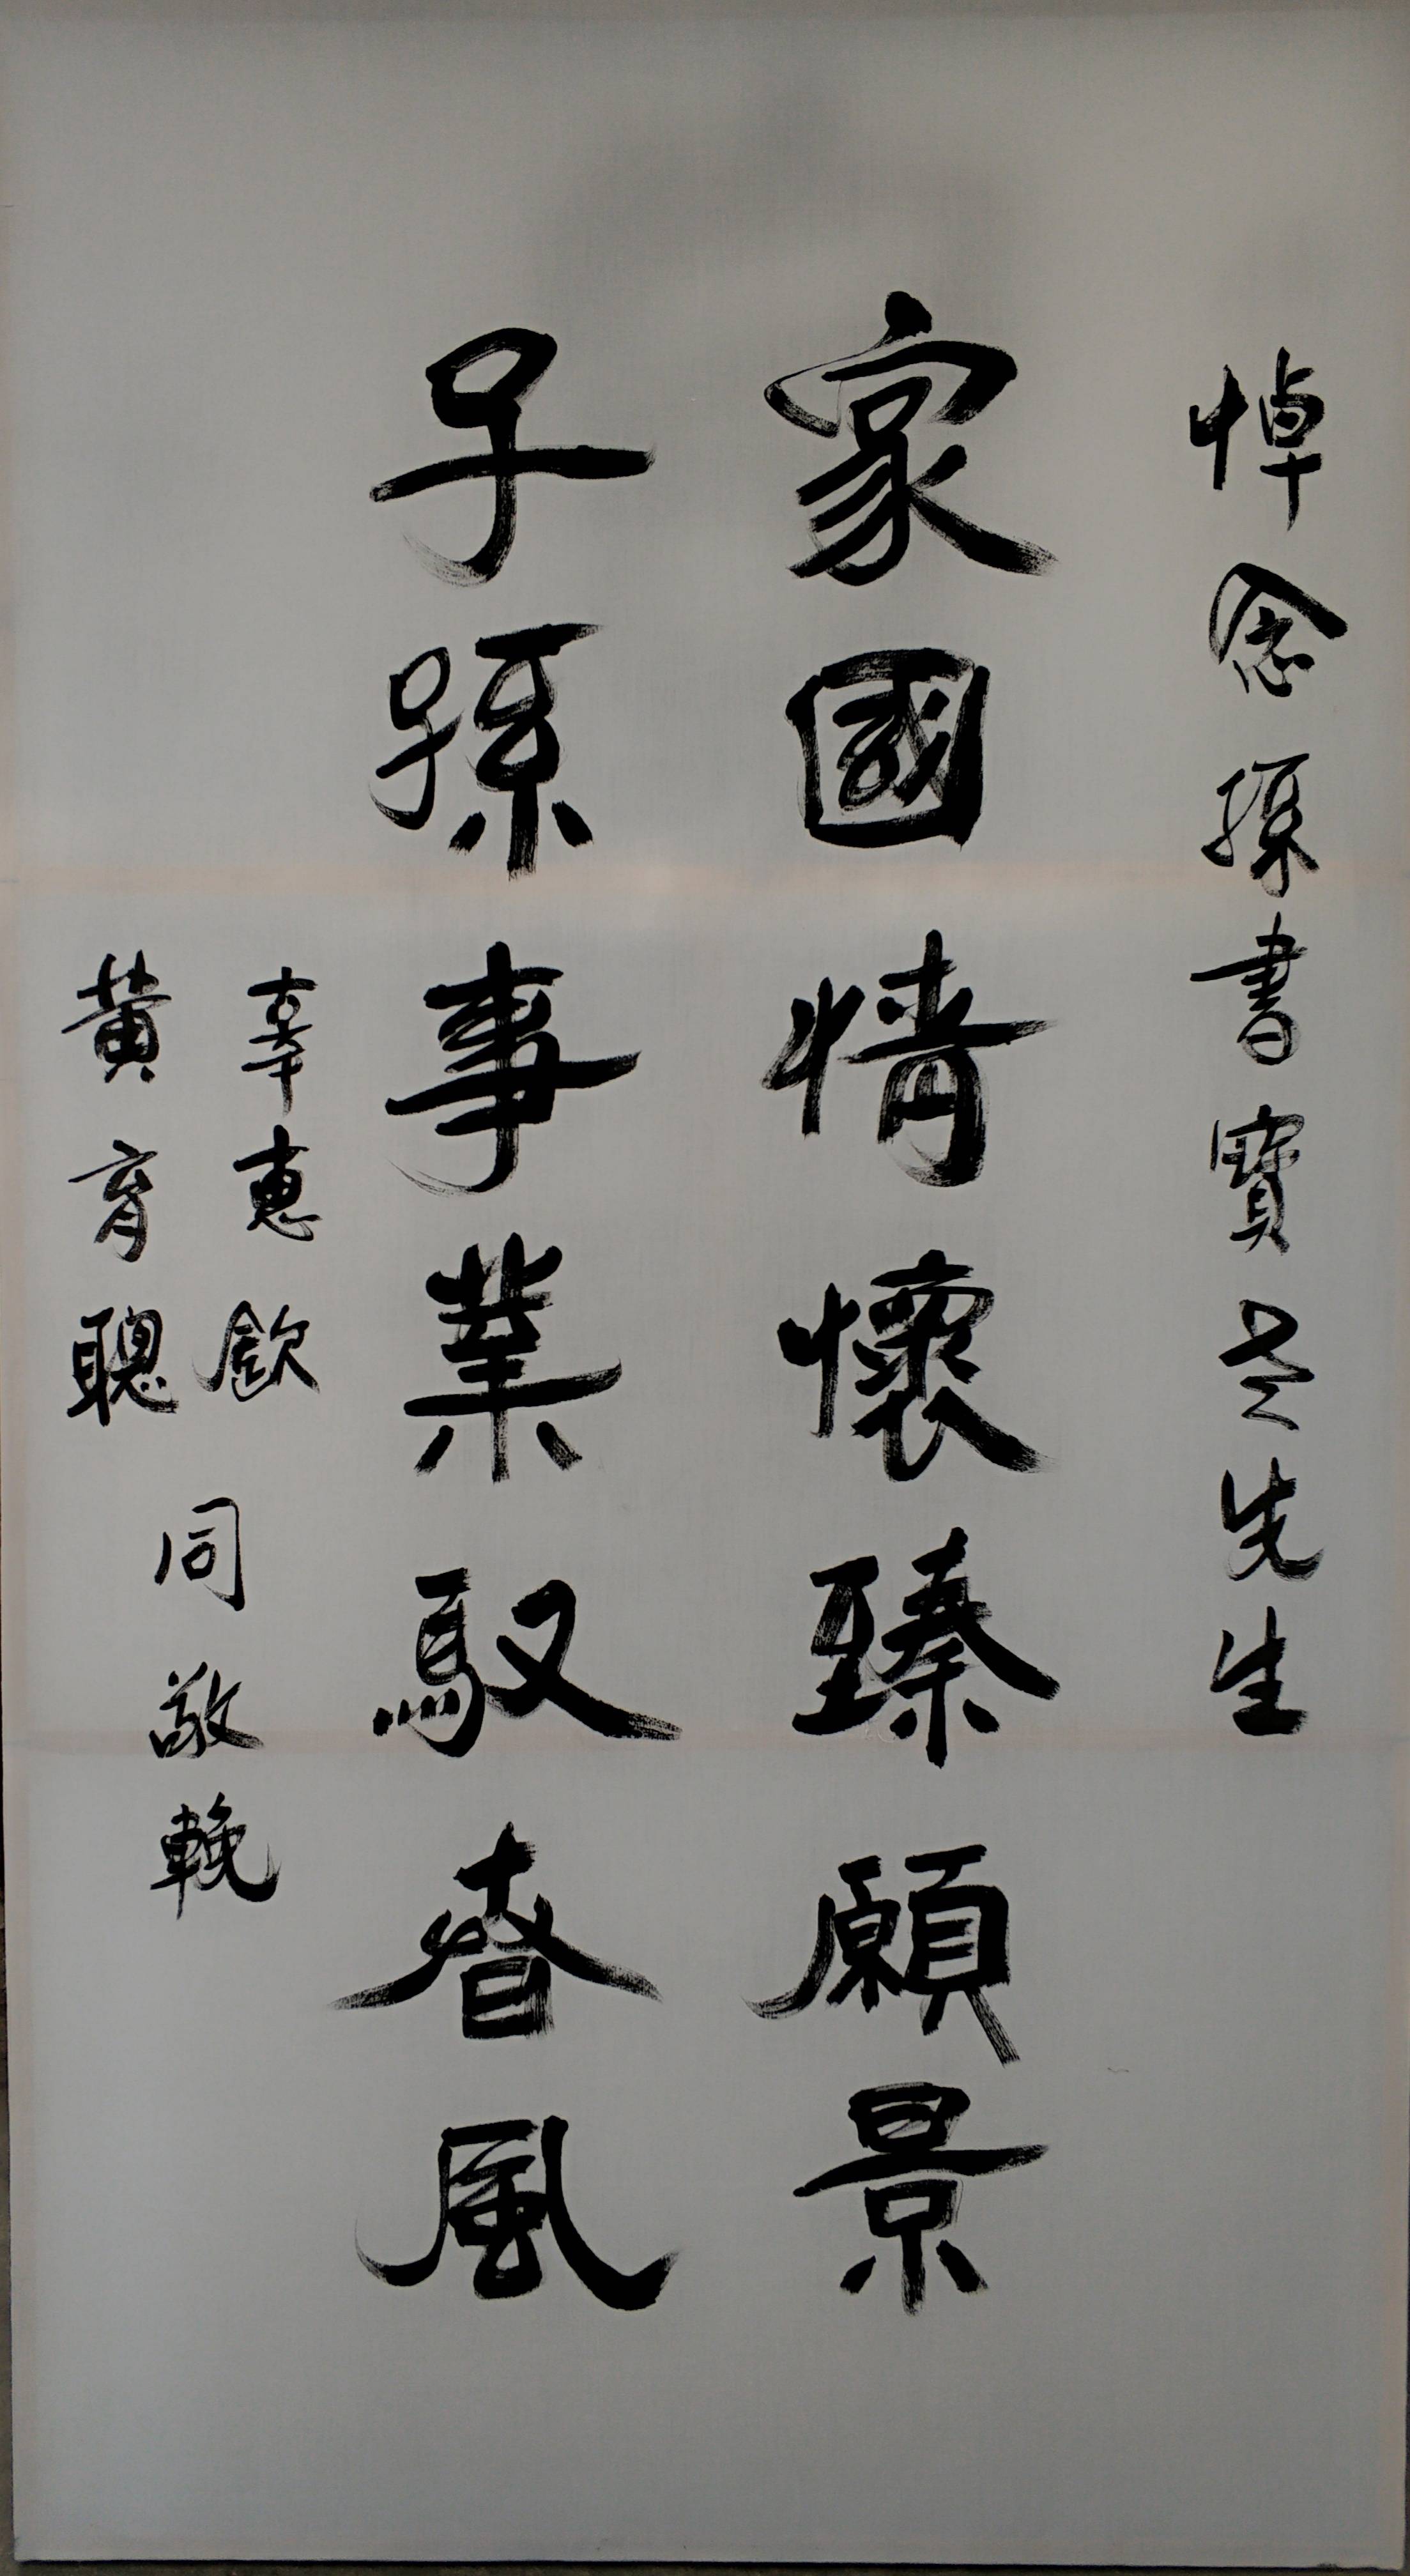 悼念孫書寶老先生
家國情懷臻願景
子孫事業馭春風
辜惠欽
黃育聰
同敬輓